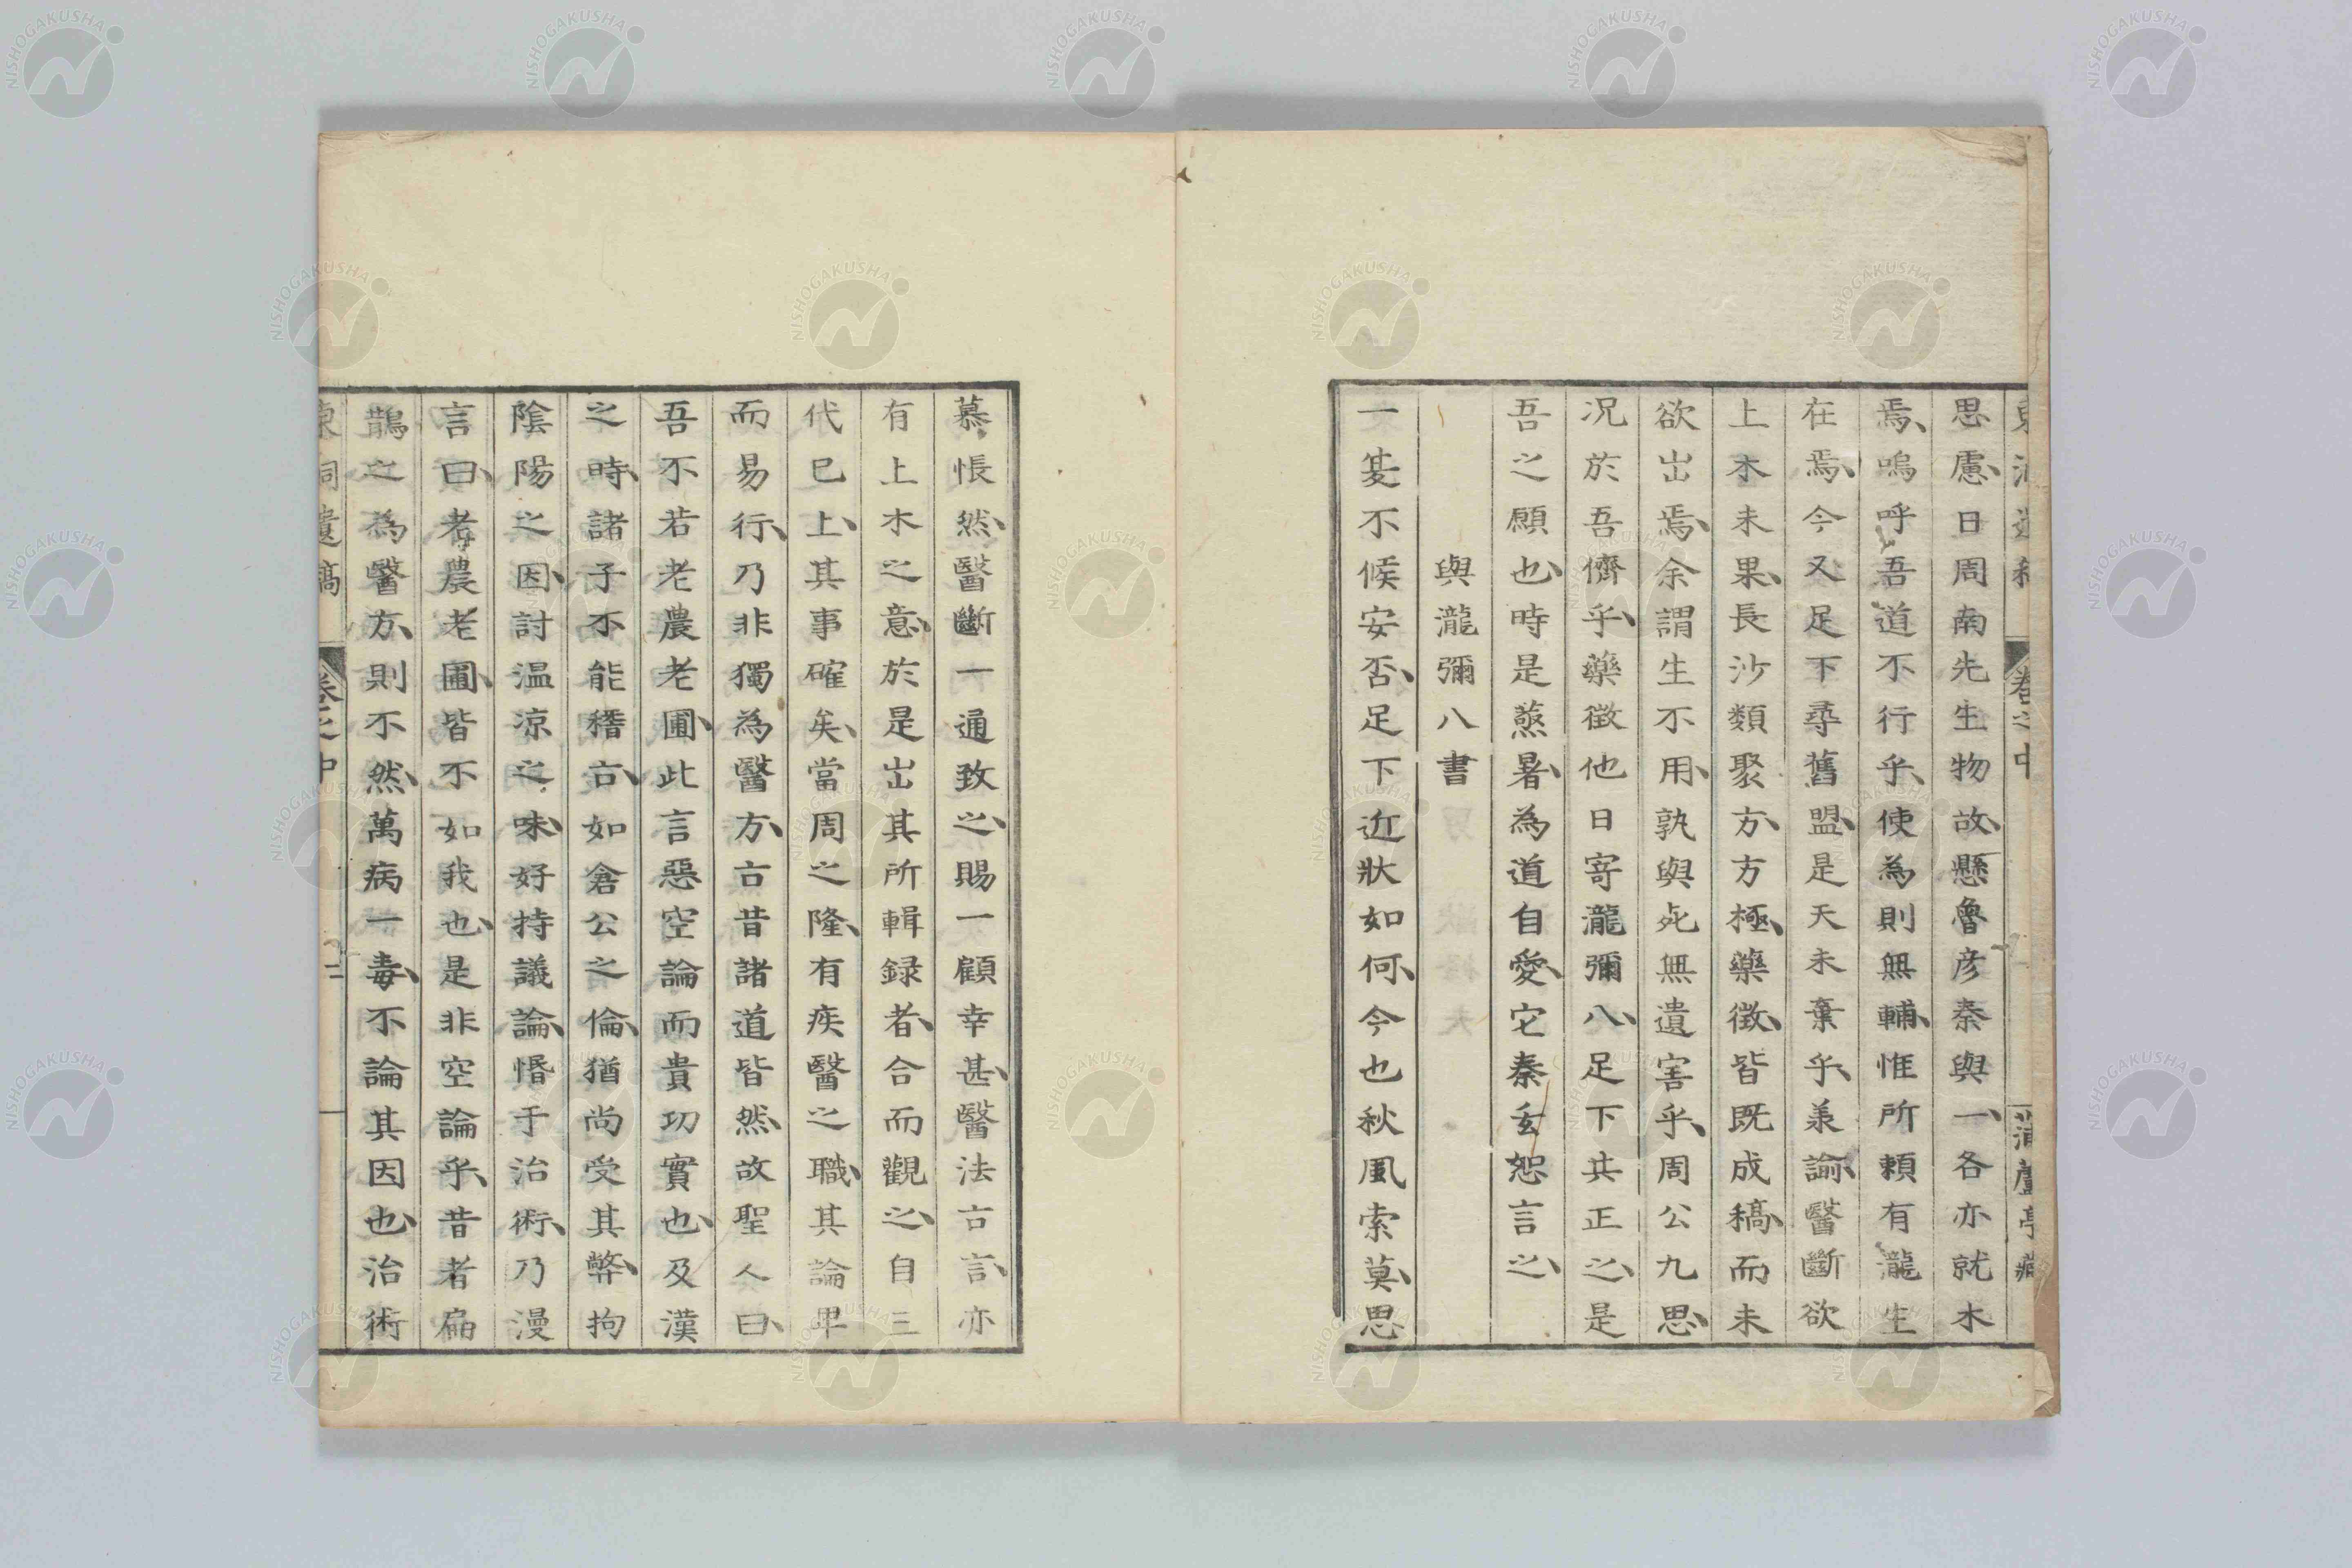 思慮、日周南先生物故、懸魯彦秦與一、各亦就木
焉、嗚呼吾道不行乎、使為則無輔、惟所頼有瀧生
在焉、今又足下尋舊盟、是天未棄乎、羕諭、醫斷欲
上木未果、長沙類聚方、方極、藥徴、皆既成稿、而未
欲出焉、余謂生不用、孰與死無遺害乎、周公九思、
况於吾儕乎、藥徴他日寄瀧彌八、足下共正之、是
吾之願也、時是蒸暑、為道自愛、它秦玄恕言之、
與瀧彌八書
一𦮼不候安否、足下近狀如何、今也秋風索莫、思
慕悵然、醫斷一通致之、賜一顧幸甚、醫法古言、亦
有上木之意、於是出其所輯録者、合而觀之、自三
代已上、其事確矣、當周之隆、有疾醫之職、其論卑
而易行、乃非獨為醫方、古昔諸道皆然、故聖人曰、
吾不若老農老圃、此言惡空論而貴功實也、及漢
之時、諸子不能稽古、如倉公之倫、猶尚受其弊、拘
陰陽之因、討温凉之味、好持議論、惛于治術、乃漫
言曰、老農老圃、皆不如我也、是非空論乎、昔者扁
鵲之為醫方、則不然、萬病一毒、不論其因也、治術
東洞遺稿 卷之中 二
NISHOGAKUSHA